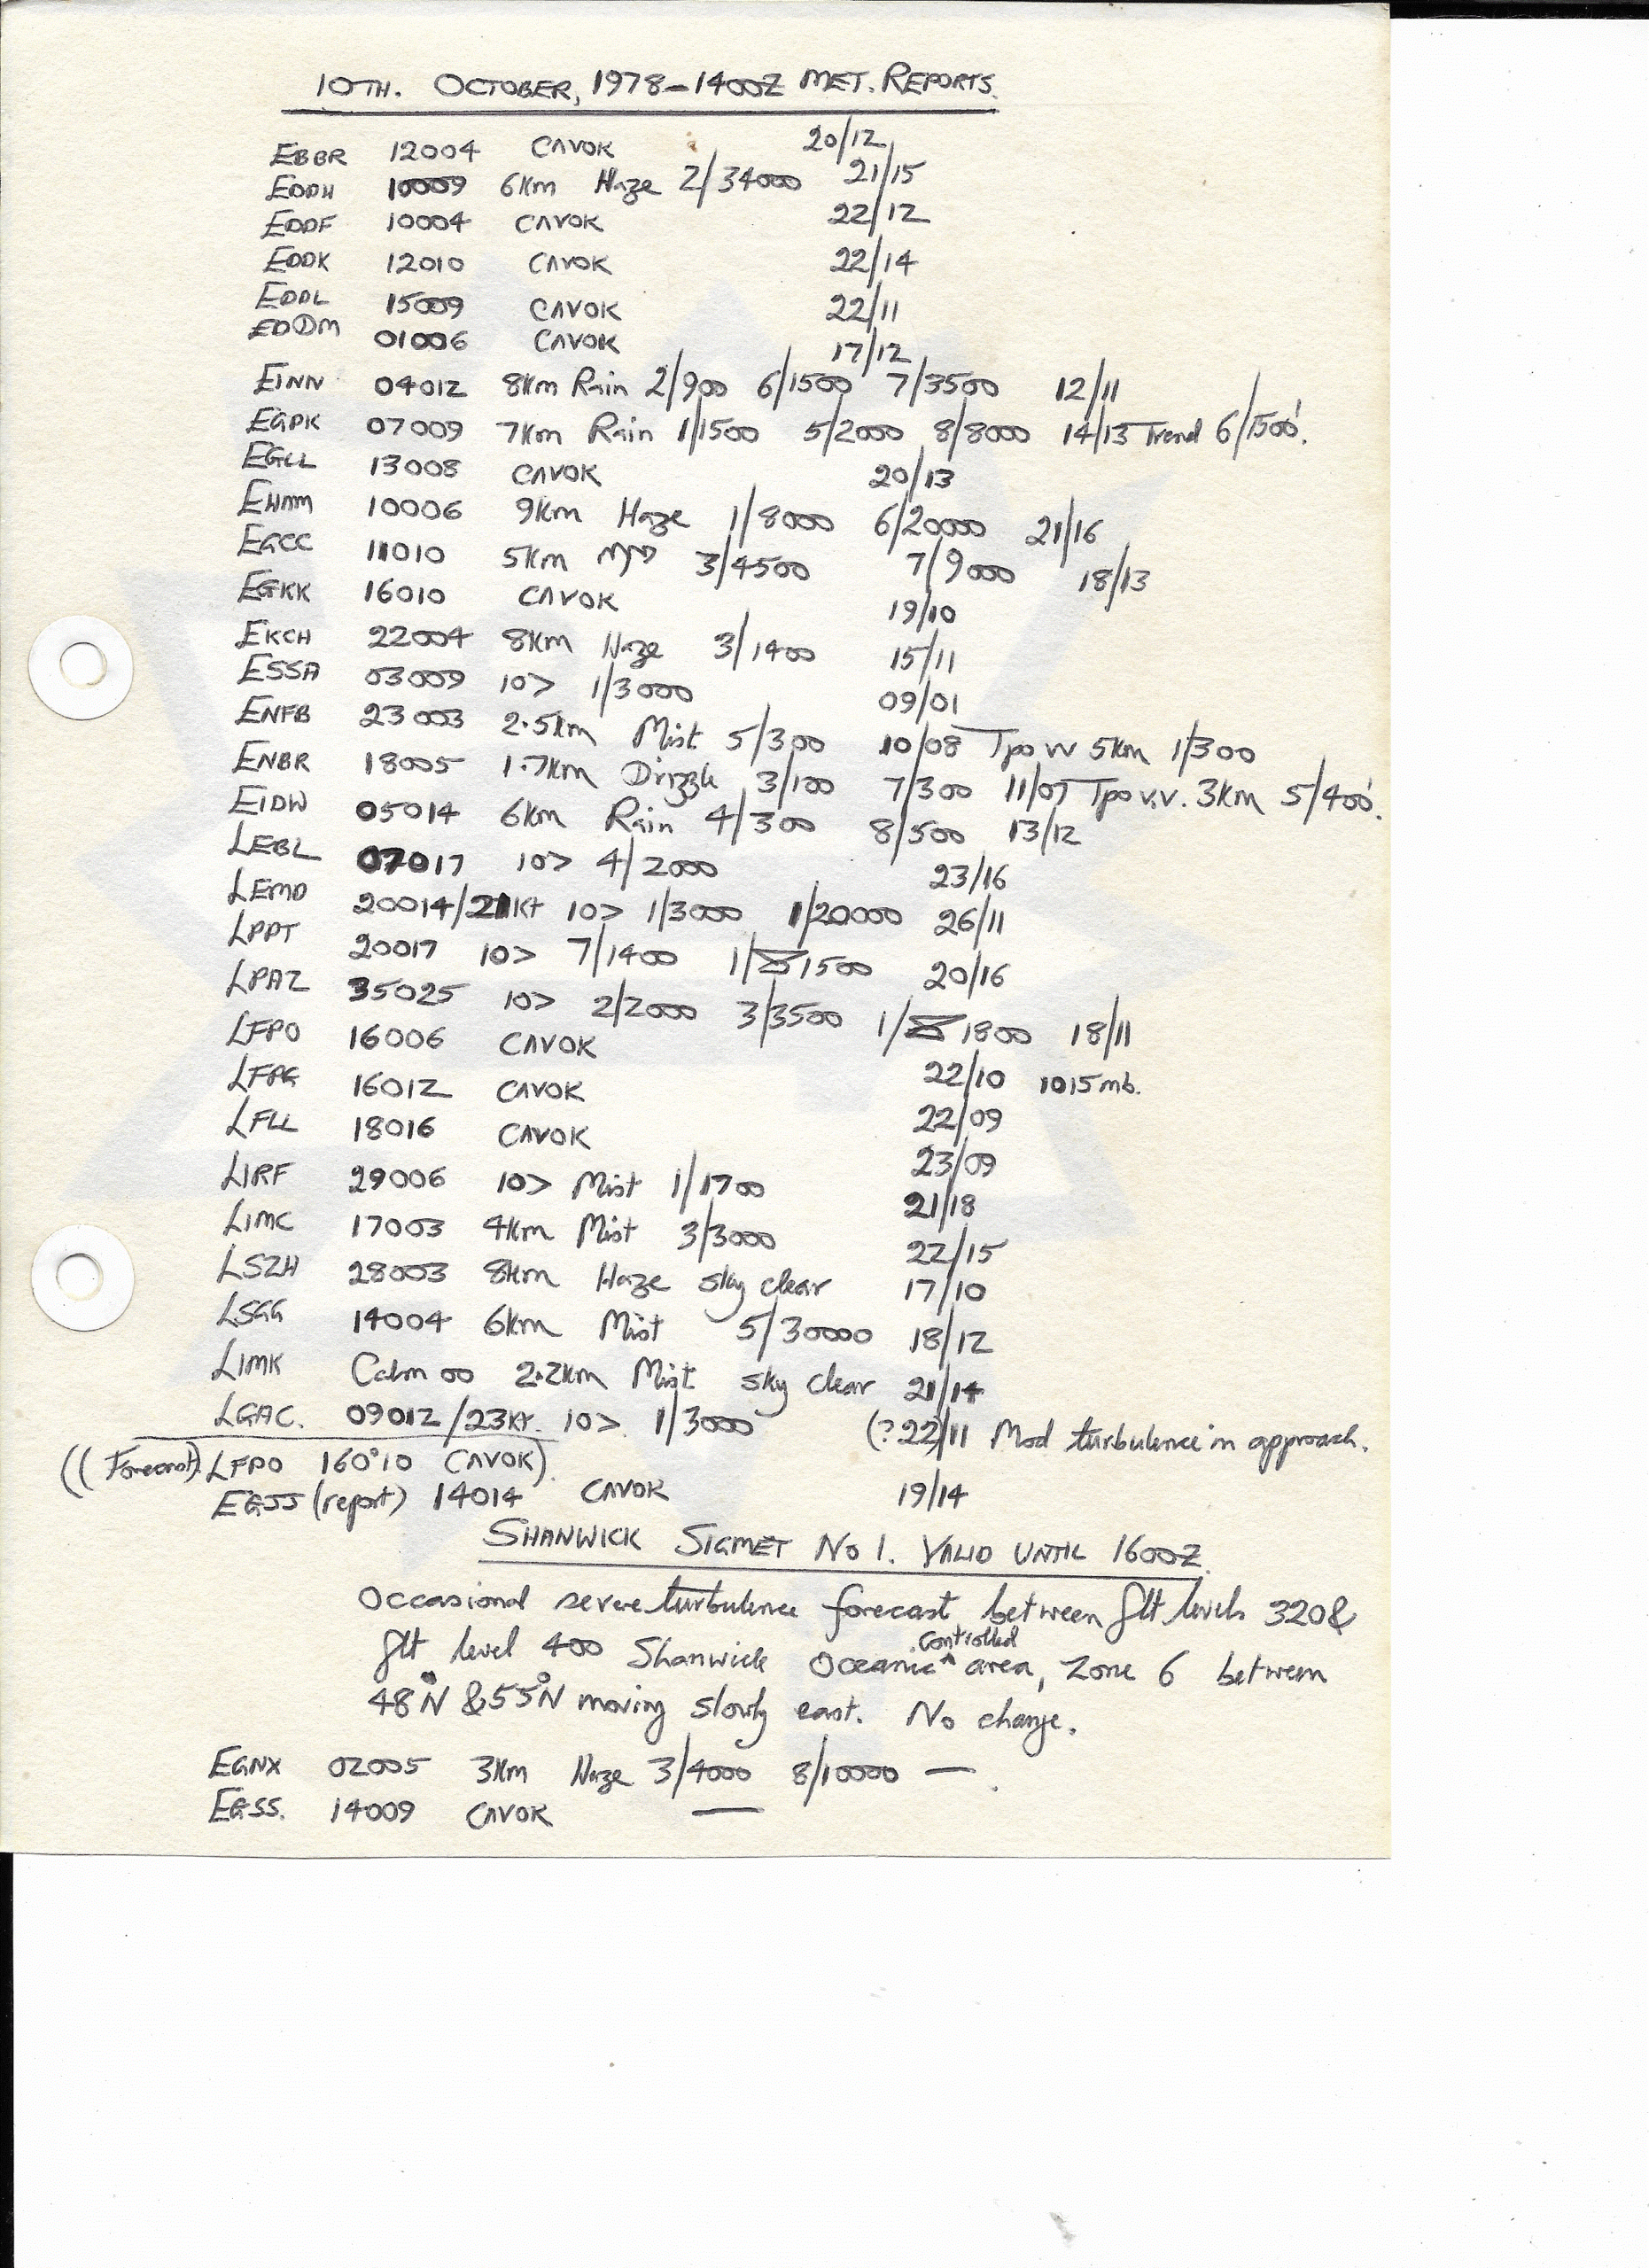 10TH. OCTOBER, 1978-1400Z MET. REPORTS.
EBBR 12004 CAVOK 20/12
EDDH 10009 6Km Haze 2/34000 21/15
EDDF 10004 CAVOK 22/12
EDDK 12010 CAVOK 22/14
EDDL 15009 CAVOK 22/11
EDDM 01006 CAVOK 17/12
EINN 04012 8Km Rain 2/900 6/1500 7/3500 12/11
EGPK 07009 7Km Rain 1/1500 5/2000 8/8000 14/13 Trend 6/1500'.
EGLL 13008 CAVOK 20/13
EHAM 10006 9Km Haze 1/8000 6/20000 21/16
EGCC 11010 5Km 3/4500 7/9000 18/13
EGKK 16010 CAVOK 19/10
EKCH 22004 8Km Haze 3/1400 15/11
ESSA 03009 10> 1/3000 09/01
ENFB 23003 2.5Km Mist 5/300 10/08 Tpo vv 5Km 1/300
ENBR 18005 1.7Km Drizzle 3/100 7/300 11/07 Tpo v.v. 3Km 5/400'.
EIDW 05014 6Km Rain 4/300 8/500 13/12
LEBL 07017 10> 4/2000 23/16
LEMD 20014/21Kt 10> 1/3000 1/20000 26/11
LPPT 20017 10> 7/1400 1/1500 20/16
LPAZ 35025 10> 2/2000 3/3500 1/1800 18/11
LFPO 16006 CAVOK 22/10 1015mb.
LFPG 16012 CAVOK 22/09
LFLL 18016 CAVOK 23/09
LIRF 29006 10> Mist 1/1700 21/18
LIMC 17003 4Km Mist 3/3000 22/15
LSZH 28003 8Km Haze sky clear 17/10
LSGG 14004 6Km Mist 5/30000 18/12
LIMK Calm 00 2.2Km Mist sky clear 21/14
LGAC. 09012/23Kt. 10> 1/3000 (?22/11 Mod turbulence in approach.
((Forecast) LFPO 160°10 CAVOK)
EGSS (report) 14014 CAVOK 19/14
SHANWICK SIGMET NO 1. VALID UNTIL 1600Z
Occasional severe turbulence forecast between flt levels 320 &
flt level 400 Shanwick Oceanic controlled area, Zone 6 between
48°N & 55°N moving slowly east. No change.
EGNX 02005 3Km Haze 3/4000 8/10000 — .
EGSS. 14009 CAVOK —